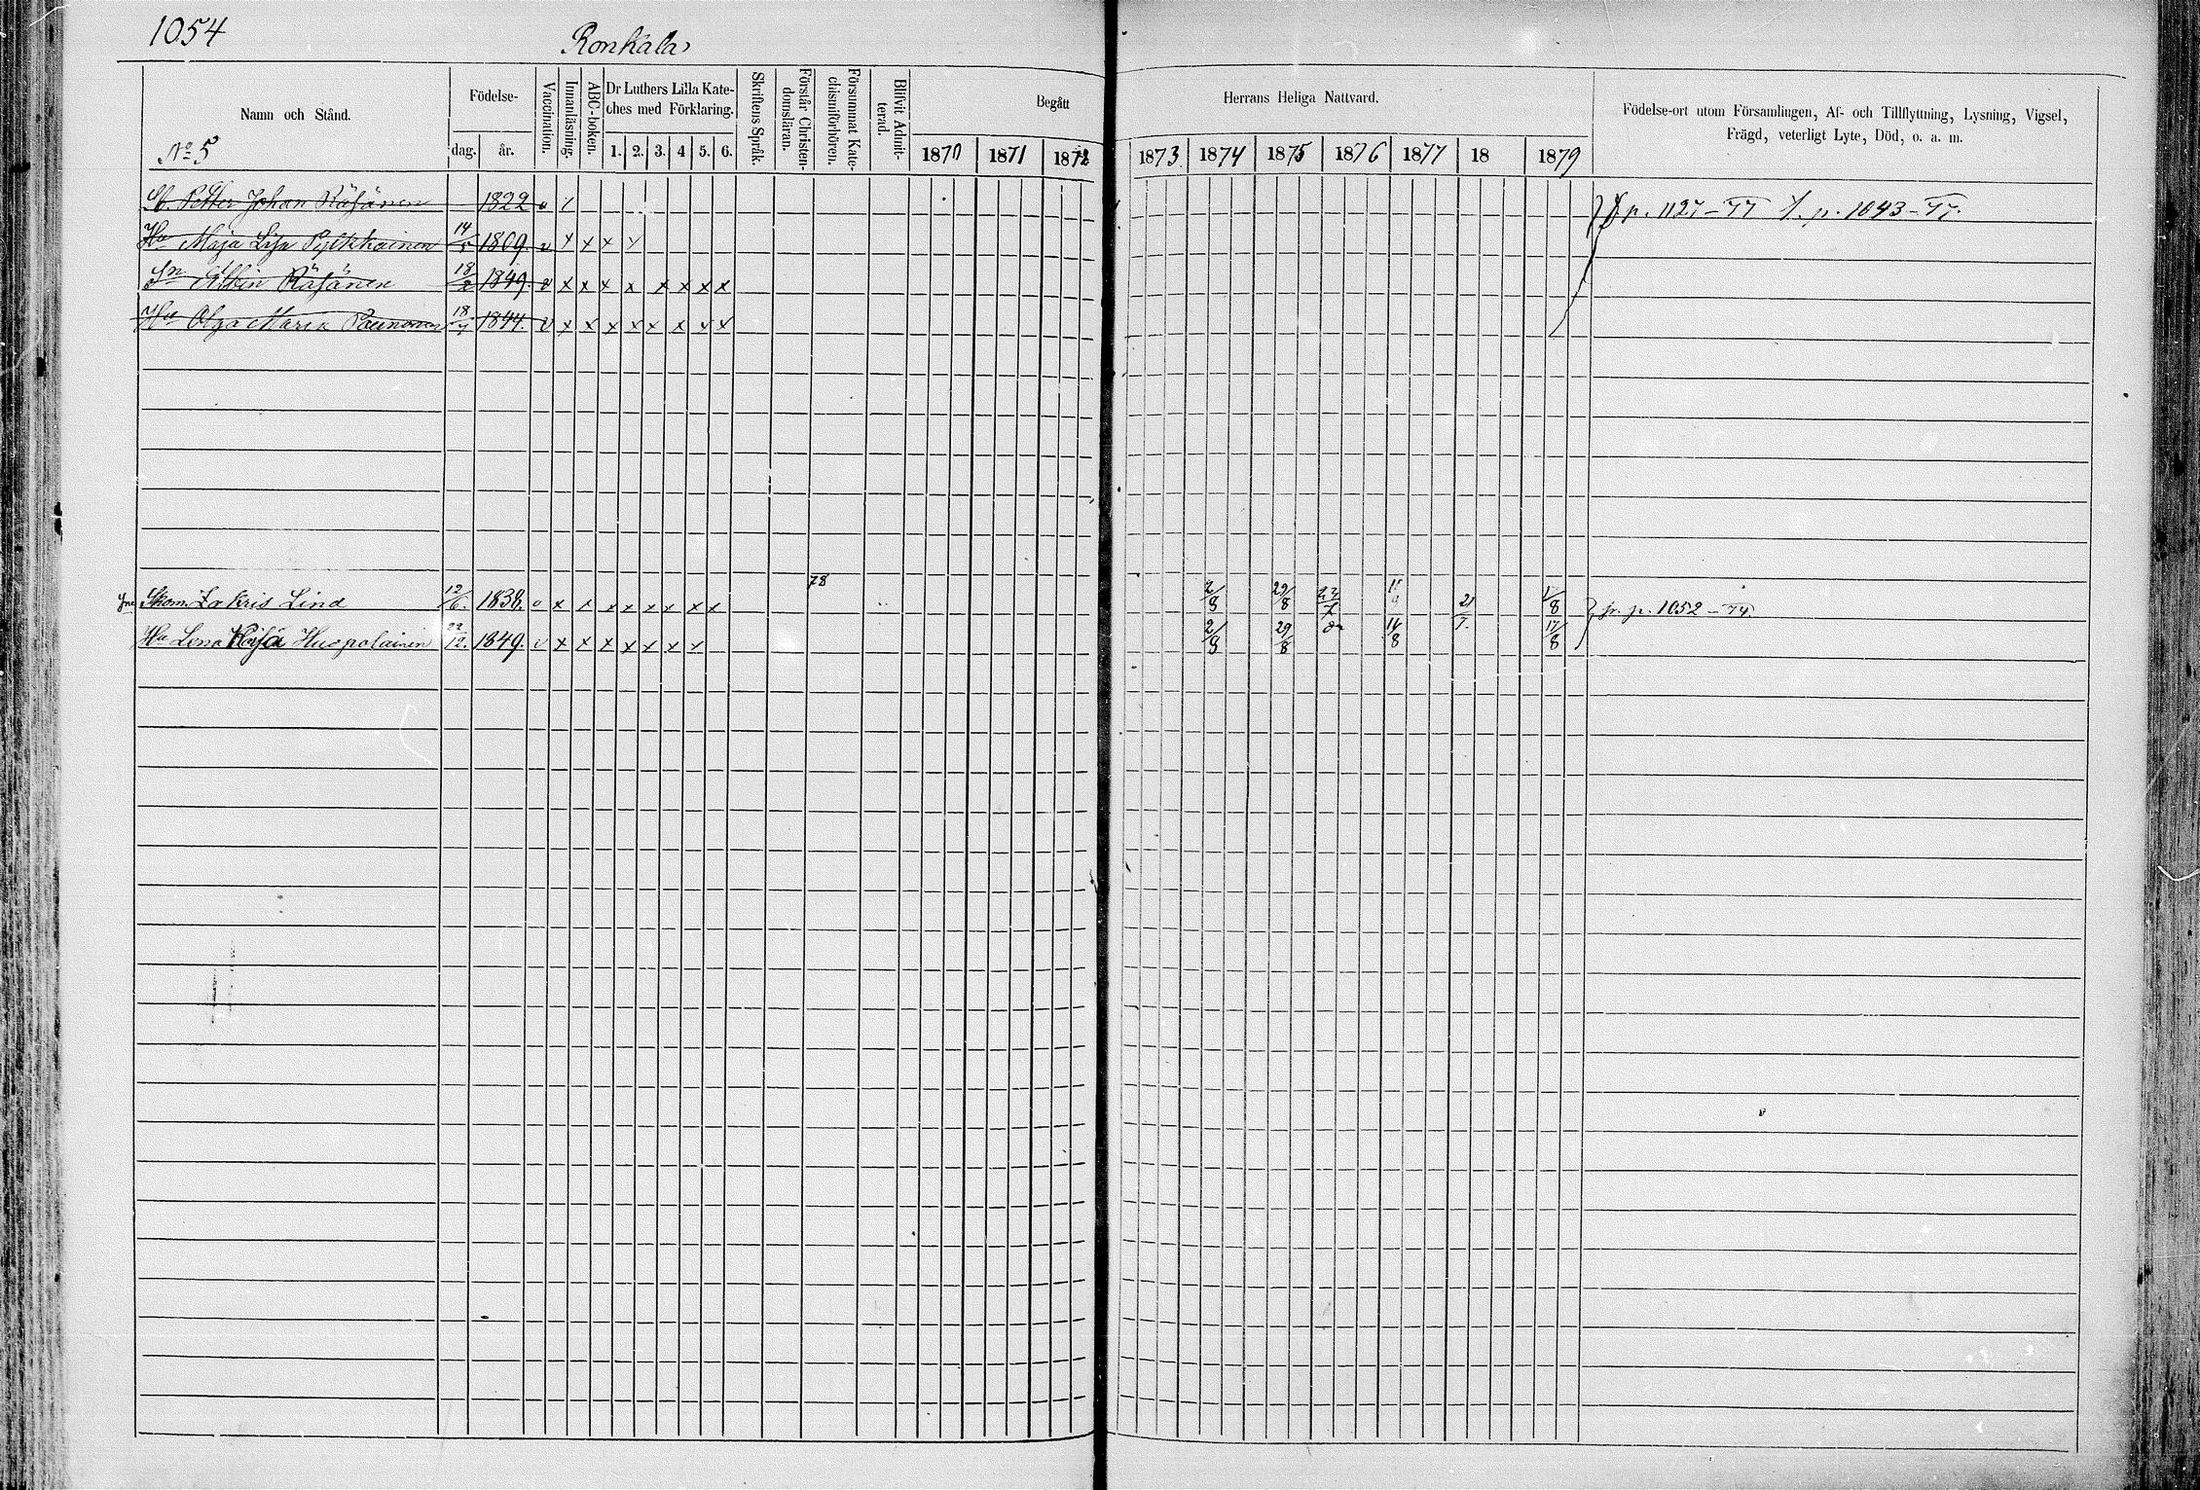 1054
Ronkala
Namn och Stånd.
Födelse-
dag. år.
Vaccination.
Innanläsning.
ABC-boken.
Dr Luthers Lilla Kate-
ches med Förklaring.
1. 2. 3. 4 5. 6.
Skriftens Språk.
Förstår Christen-
domsläran.
Försummat Kate-
chismiförhören.
Blifvit Admit-
terad.
Begått
Herrans Heliga Nattvard.
1870 1871 1872 1873 1874 1875 1876 1877 18 1879
Födelse-ort utom Församlingen, Af- och Tillflyttning, Lysning, Vigsel,
Frägd, veterligt Lyte, Död, o. a. m.
No 5
Petter Johan Räsänen 1822 v
p. 1127-77 p. 1043-77.
Hu Maja Lisa Pylkkäinen 14/5 1809. v x x x
Sn Albin Räsänen 18/2 1849. v x x x x x x x x
Hu Olga Maria 18/7 1844. v x x x x x x x x
78
Skom. Zakris Lind 12/6. 1838. v x x x x x x x 2/8 29/8 21/7 fr. p. 1052-74
Hu Lena Kajsa Huspolainen 22/12. 1849. v x x x x x x x 2/8 29/8 16/8 17/8